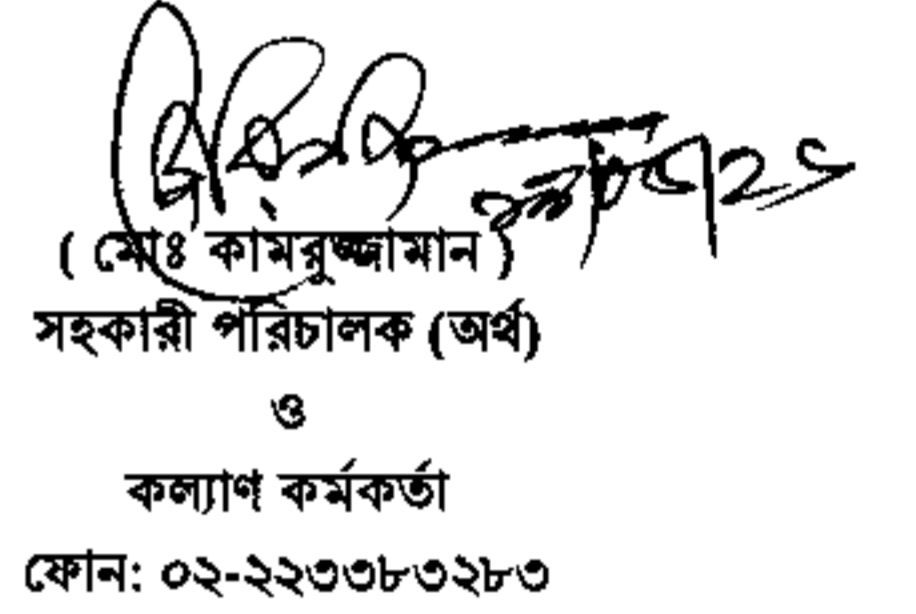 ( মোঃ কামরুজ্জামান )
সহকারী পরিচালক (অর্থ)
ও
কল্যাণ কর্মকর্তা
ফোন: ০২-২২৩৩৮৩২৮৩